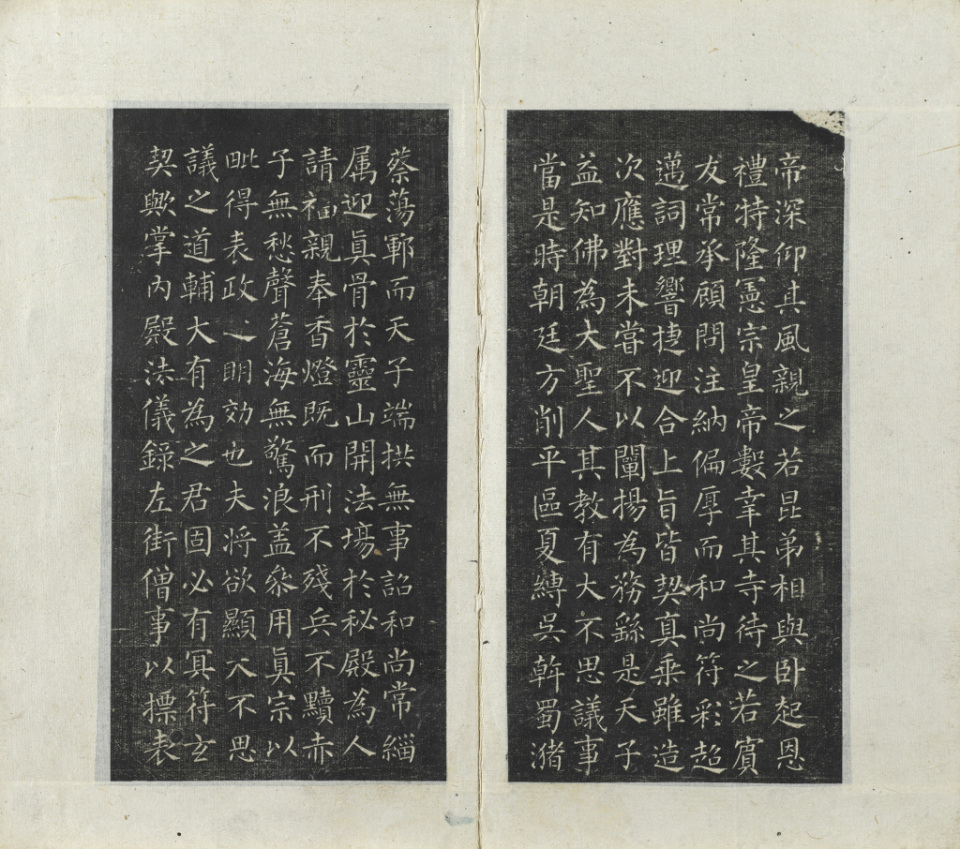 帝深仰其風親之若昆弟相與卧起恩
禮特隆憲宗皇帝數幸其寺待之若賓
友常承顧問注納偏厚而和尚符彩超
邁詞理響捷迎合上旨皆契真乘雖造
次應對未嘗不以闡揚為務繇是天子
益知佛為大聖人其教有大不思議事
當是時朝廷方削平區夏縛吳斡蜀潴
蔡蕩鄆而天子端拱無事詔和尚常緇
属迎眞骨於靈山開法場於秘殿為人
請福親奉香燈既而刑不殘兵不黷赤
子無愁聲蒼海無驚浪盖叅用眞宗以
毗得表政之明効也夫將欲顯大不思
議之道輔大有為之君固必有冥符玄
契歟掌內殿法儀錄左街僧事以摽表